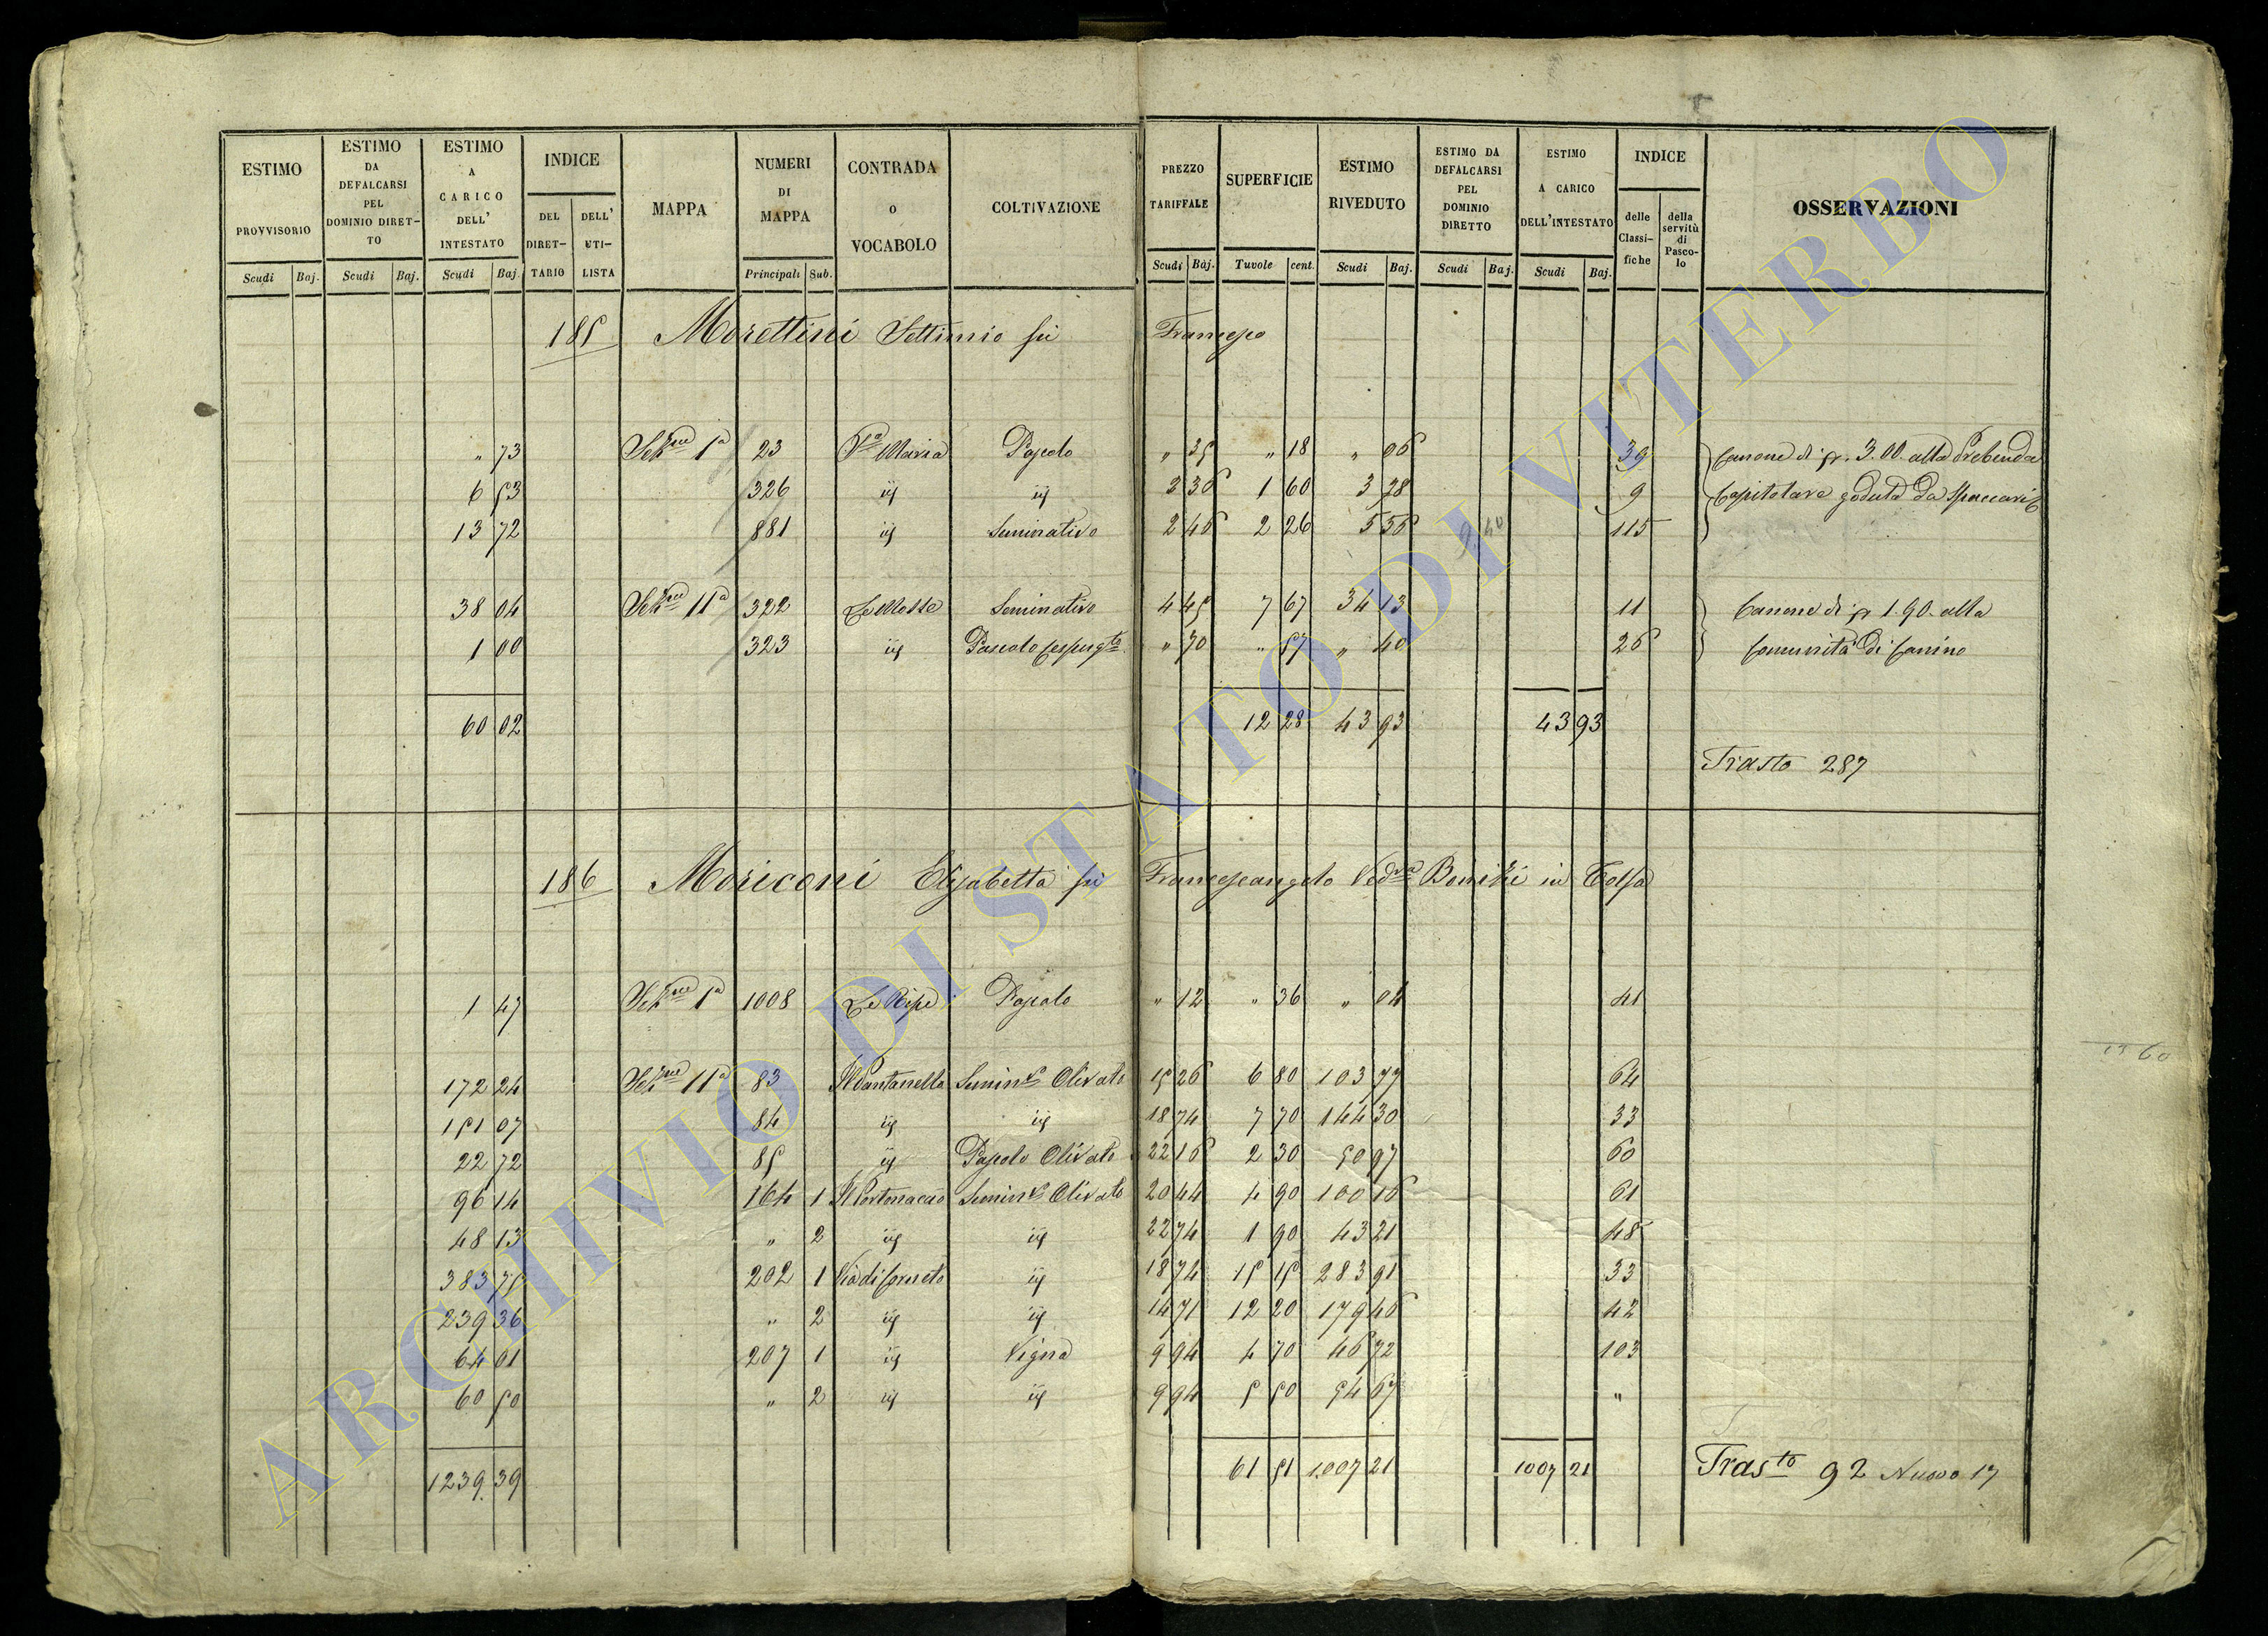 ESTIMO PROVVISORIO | ESTIMO DA DEFALCARSI PEL DOMINIO DIRETTO | ESTIMO A CARICO DELL' INTESTATO | INDICE DEL DIRETTARIO | DELL' UTILISTA | MAPPA | NUMERI DI MAPPA | CONTRADA O VOCABOLO | COLTIVAZIONE | PREZZO TARIFFALE | SUPERFICIE | ESTIMO RIVEDUTO | ESTIMO DA DEFALCARSI PEL DOMINIO DIRETTO | ESTIMO A CARICO DELL'INTESTATO | INDICE delle Classifiche | della servitù di Pascolo | OSSERVAZIONI
Scudi Baj. | Scudi Baj. | Scudi Baj. | Principali Sub. | Scudi Baj. | Tavole cent. | Scudi Baj. | Scudi Baj. | Scudi Baj.
185 Morettini Settimio fu Francesco
" 73 Sezne 1a 23 Sa Maria Pascolo " 35 " 18 " 06 39 Canone di s. 3.00 alla Prebenda
6 53 326 id id 2 36 1 60 3 78 9 Capitolare goduta da
13 72 881 id Seminativo 2 46 2 26 5 56 115
38 04 Sezne 11a 322 Le Mosse Seminativo 4 45 7 67 34 13 11 Canone di s. 1.90 alla
1 00 323 id Pascolo cespugto " 70 " 57 " 40 26 Comunità di Canino
60 02 12 28 43 93 43 93
Trasto 287
186 Moriconi Elisabetta fu Francescangelo Vedva in Tolfa
1 47 Sezne 1a 1008 Le Ripe Pascolo " 12 " 36 " 04 41
172 24 Sezne 11a 83 Il Pantanella Seminvo Olivato 15 26 6 80 103 77 64
151 07 84 id id 18 74 7 70 144 30 33
22 72 85 id Pascolo Olivato 22 16 2 30 50 97 60
96 14 164 1 Il Portonaccio Seminvo Olivato 20 44 4 90 100 16 61
48 13 " 2 id id 22 74 1 90 43 21 48
383 75 202 1 Via di Corneto id 18 74 15 15 283 91 33
239 36 " 2 id id 14 71 12 20 179 46 42
64 01 207 1 id Vigna 9 94 4 70 46 72 103
60 50 " 2 id id 9 94 5 50 54 67 "
1239 39 61 51 1007 21 1007 21 Trasto 92 Nuovo 17
ARCHIVIO DI STATO DI VITERBO